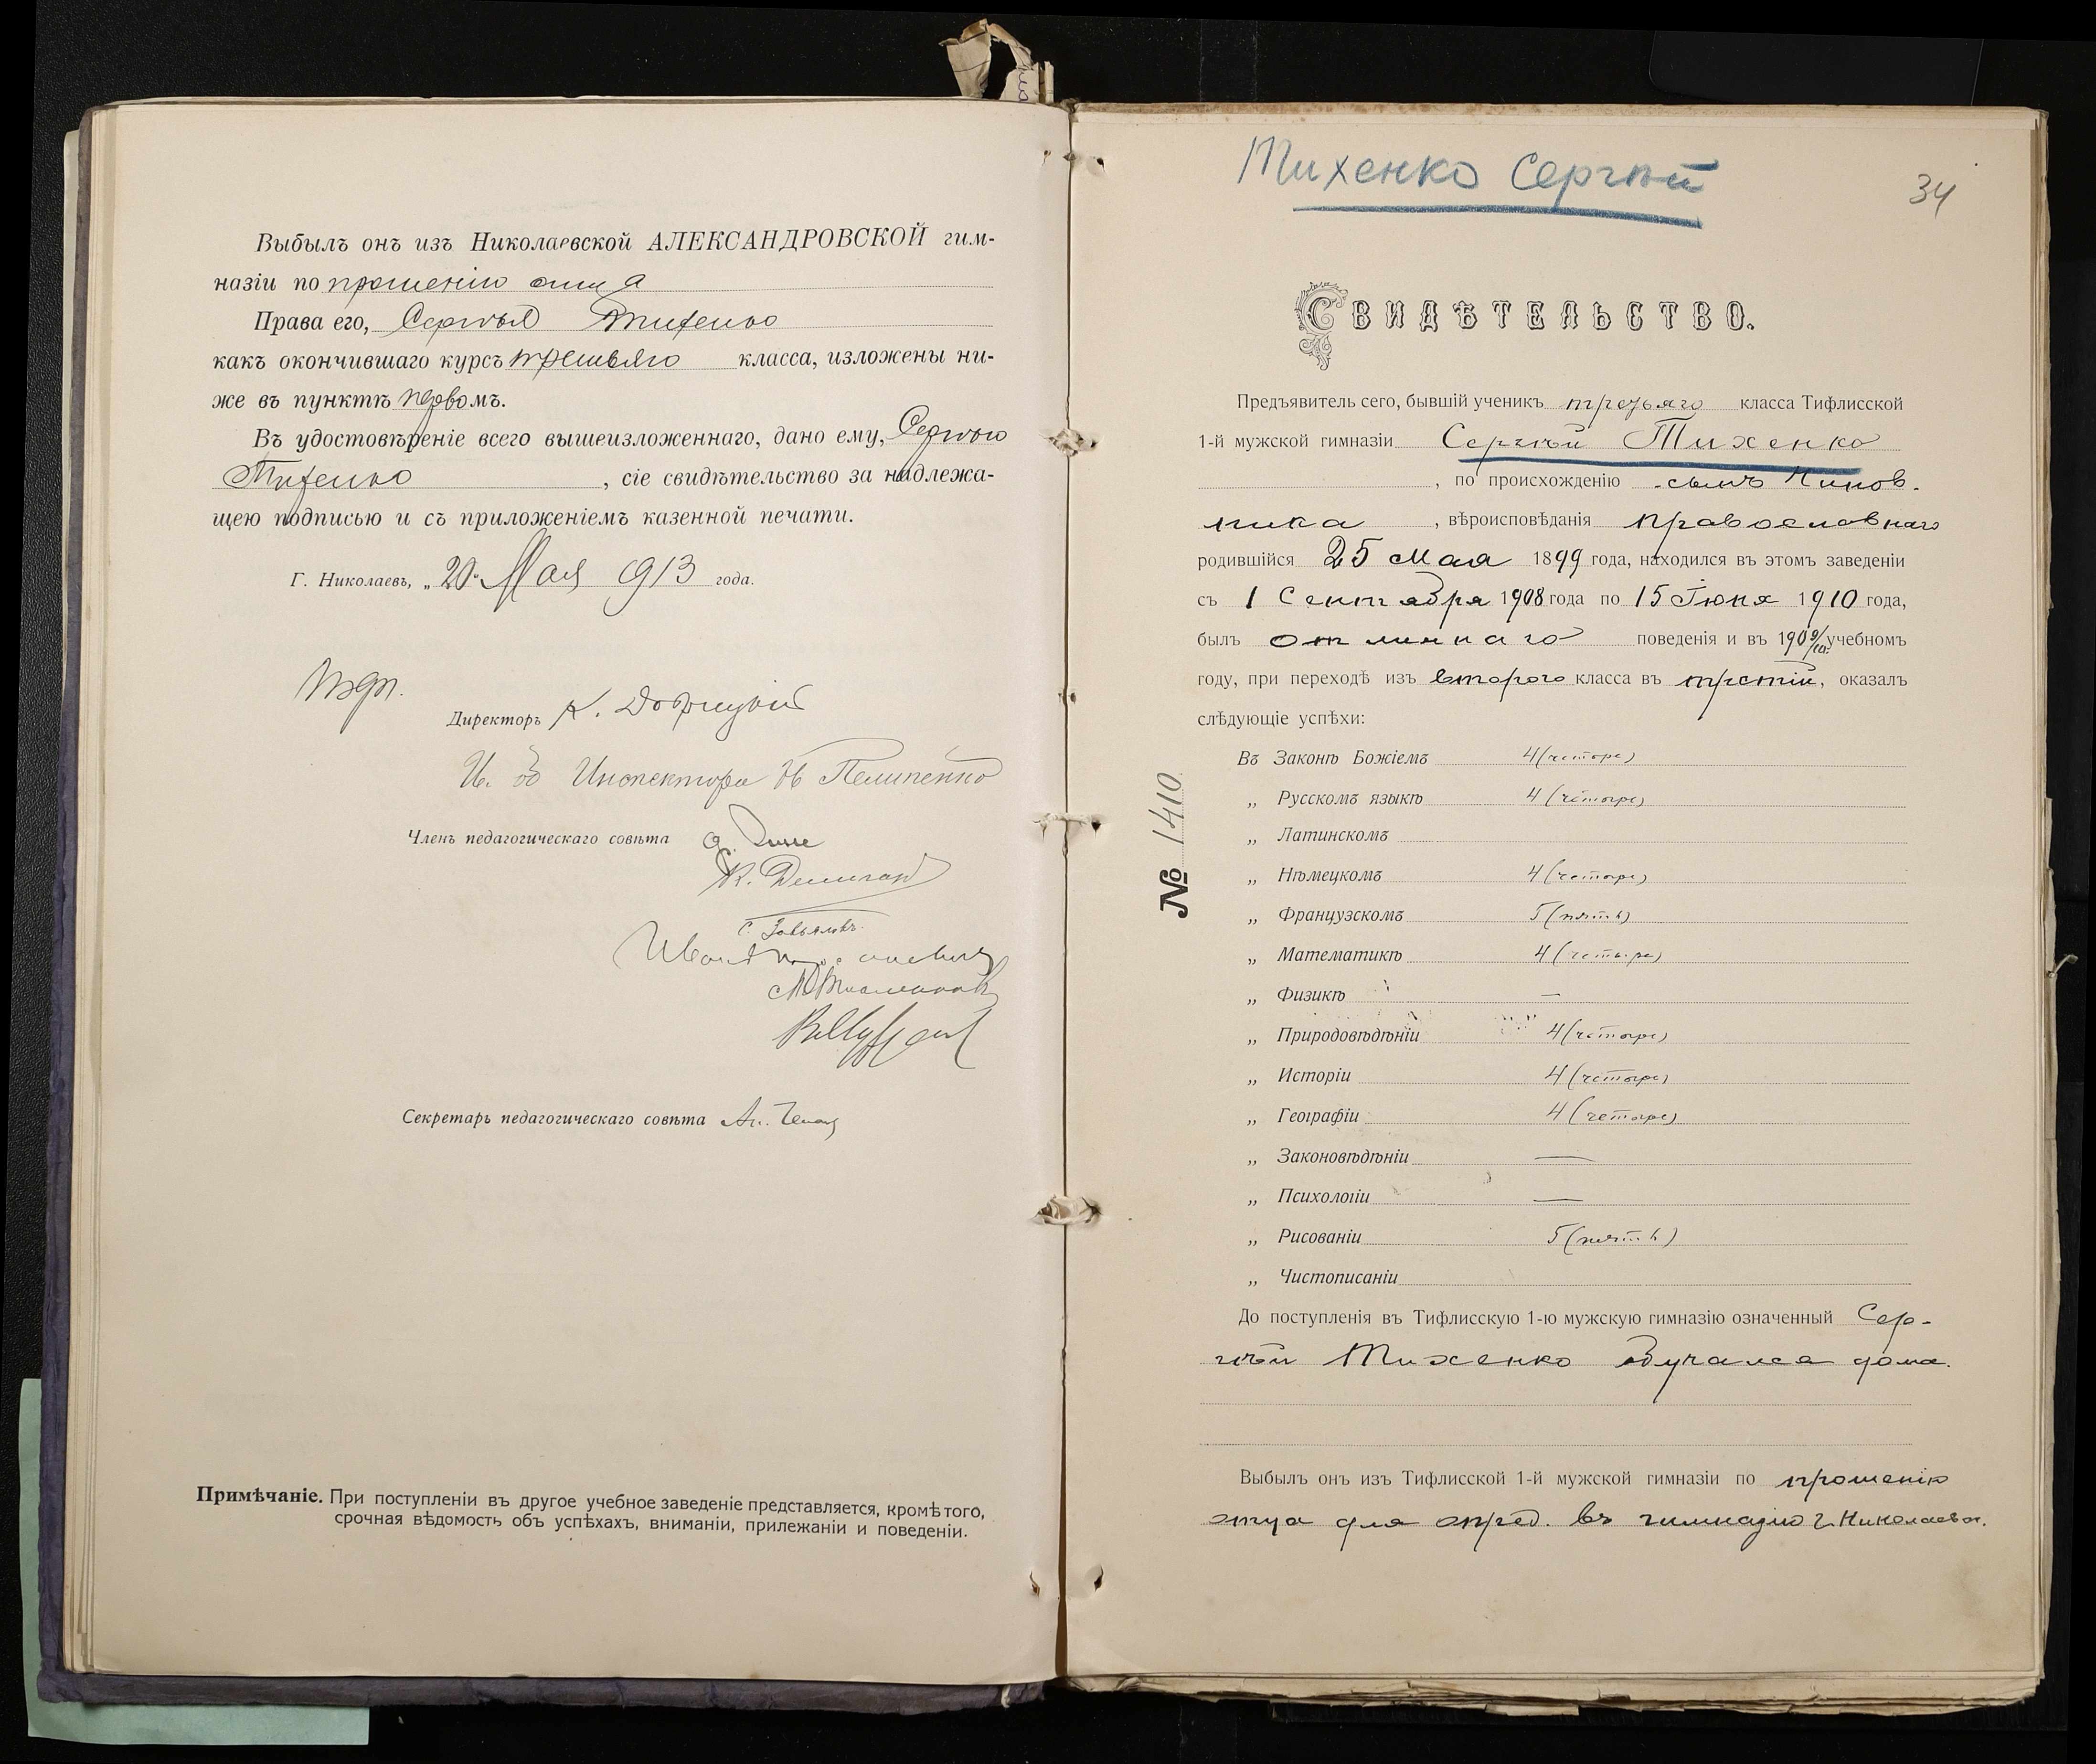 Выбылъ онъ изъ Николаевской АЛЕКСАНДРОВСКОЙ гим-
назіи по прошенію отца
Права его, Сергѣя Тихенко
какъ окончившаго курсъ третьяго класса, изложены ни-
же въ пунктѣ первомъ.
Въ удостовѣреніе всего вышеизложеннаго, дано ему, Сергѣю
Тихенко, сіе свидѣтельство за надлежа-
щею подписью и съ приложеніемъ казенной печати.
Г. Николаевъ, „20" Мая 1913 года.
Директоръ К.
И. об Инспектора Пелипенко
Членъ педагогическаго совѣта
С. Завьяловъ.
Секретарь педагогическаго совѣта
Примѣчаніе. При поступленіи въ другое учебное заведеніе представляется, кромѣ того,
срочная вѣдомость объ успѣхахъ, вниманіи, прилежаніи и поведеніи.
Тихенко Сергѣй
34
СВИДѢТЕЛЬСТВО.
Предъявитель сего, бывшій ученикъ третьяго класса Тифлисской
1-й мужской гимназіи Сергѣй Тихенко
, по происхожденію сынъ чинов-
ника, вѣроисповѣданія православнаго
родившійся 25 Мая 1899 года, находился въ этомъ заведеніи
съ 1 Сентября 1908 года по 15 Іюня 1910 года,
былъ отличнаго поведенія и въ 1909/10 учебномъ
году, при переходѣ изъ второго класса въ третій, оказалъ
слѣдующіе успѣхи:
Въ Законѣ Божіемъ 4 (четыре)
„ Русскомъ языкѣ 4 (четыре)
„ Латинскомъ
„ Нѣмецкомъ 4 (четыре)
„ Французскомъ 5 (пять)
„ Математикѣ 4 (четыре)
„ Физикѣ —
„ Природовѣдѣніи 4 (четыре)
„ Исторіи 4 (четыре)
„ Географіи 4 (четыре)
„ Законовѣдѣніи —
„ Психологіи —
„ Рисованіи 5 (пять)
„ Чистописаніи
№ 1410
До поступленія въ Тифлисскую 1-ю мужскую гимназію означенный Сер-
гѣй Тихенко обучался дома.
Выбылъ онъ изъ Тифлисской 1-й мужской гимназіи по прошенію
отца для опред. въ гимназію г. Николаева.